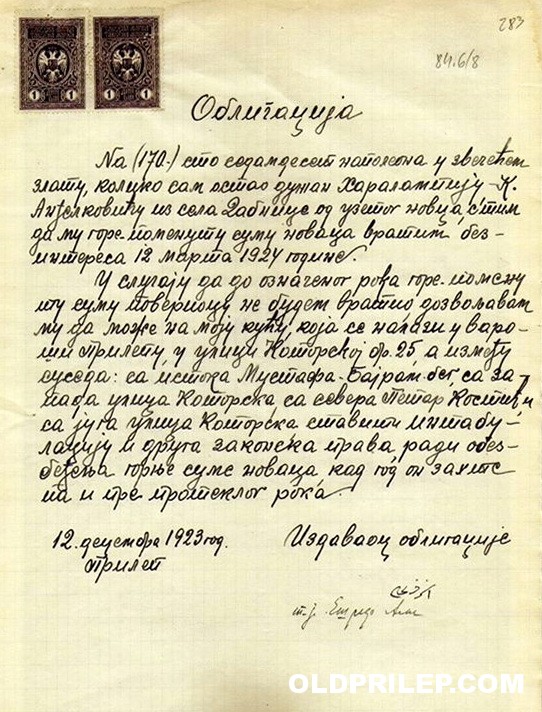 283
84.6/8
1 1 1 1
Облигација
На (170.-) сто седамдесет наполеона у звечећем
злату, колико сам остао дужан Харалампију К.
Анђелковићу из села Дабнице од узетог новца, с'тим
да му горе поменуту суму новаца вратим без-
интереса 12 марта 1924 године.
У случају да до означеног рока горе помену
ту суму повериоцу не будем вратио дозвољавам
му да може на моју кућу, која се налази у варо-
ши Прилепу, у улици Которској бр. 25, а између
суседа: са истока Мустафа-Бајрам-бег, са за-
пада улица Которска, са севера Петар Костић и
са југа улица Которска ставити интабу-
лацију и друга законска права, ради обез-
беђења горње суме новаца кад год он захте
па и пре протеклог рока.
12. децембра 1923 год.
Прилеп
Издаваоц облигације
т.ј.
OLDPRILEP.COM